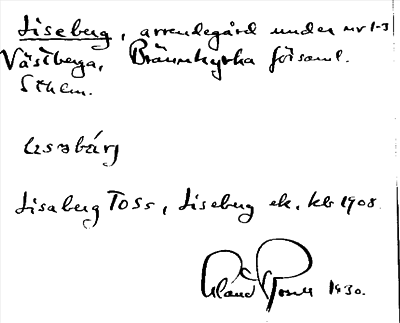 Liseberg, arrendegård under nr 1-3
Västberga, Brännkyrka församl.
Sthlm.
Lisaberg Toss, Liseberg ek. kb 1908.
1930.